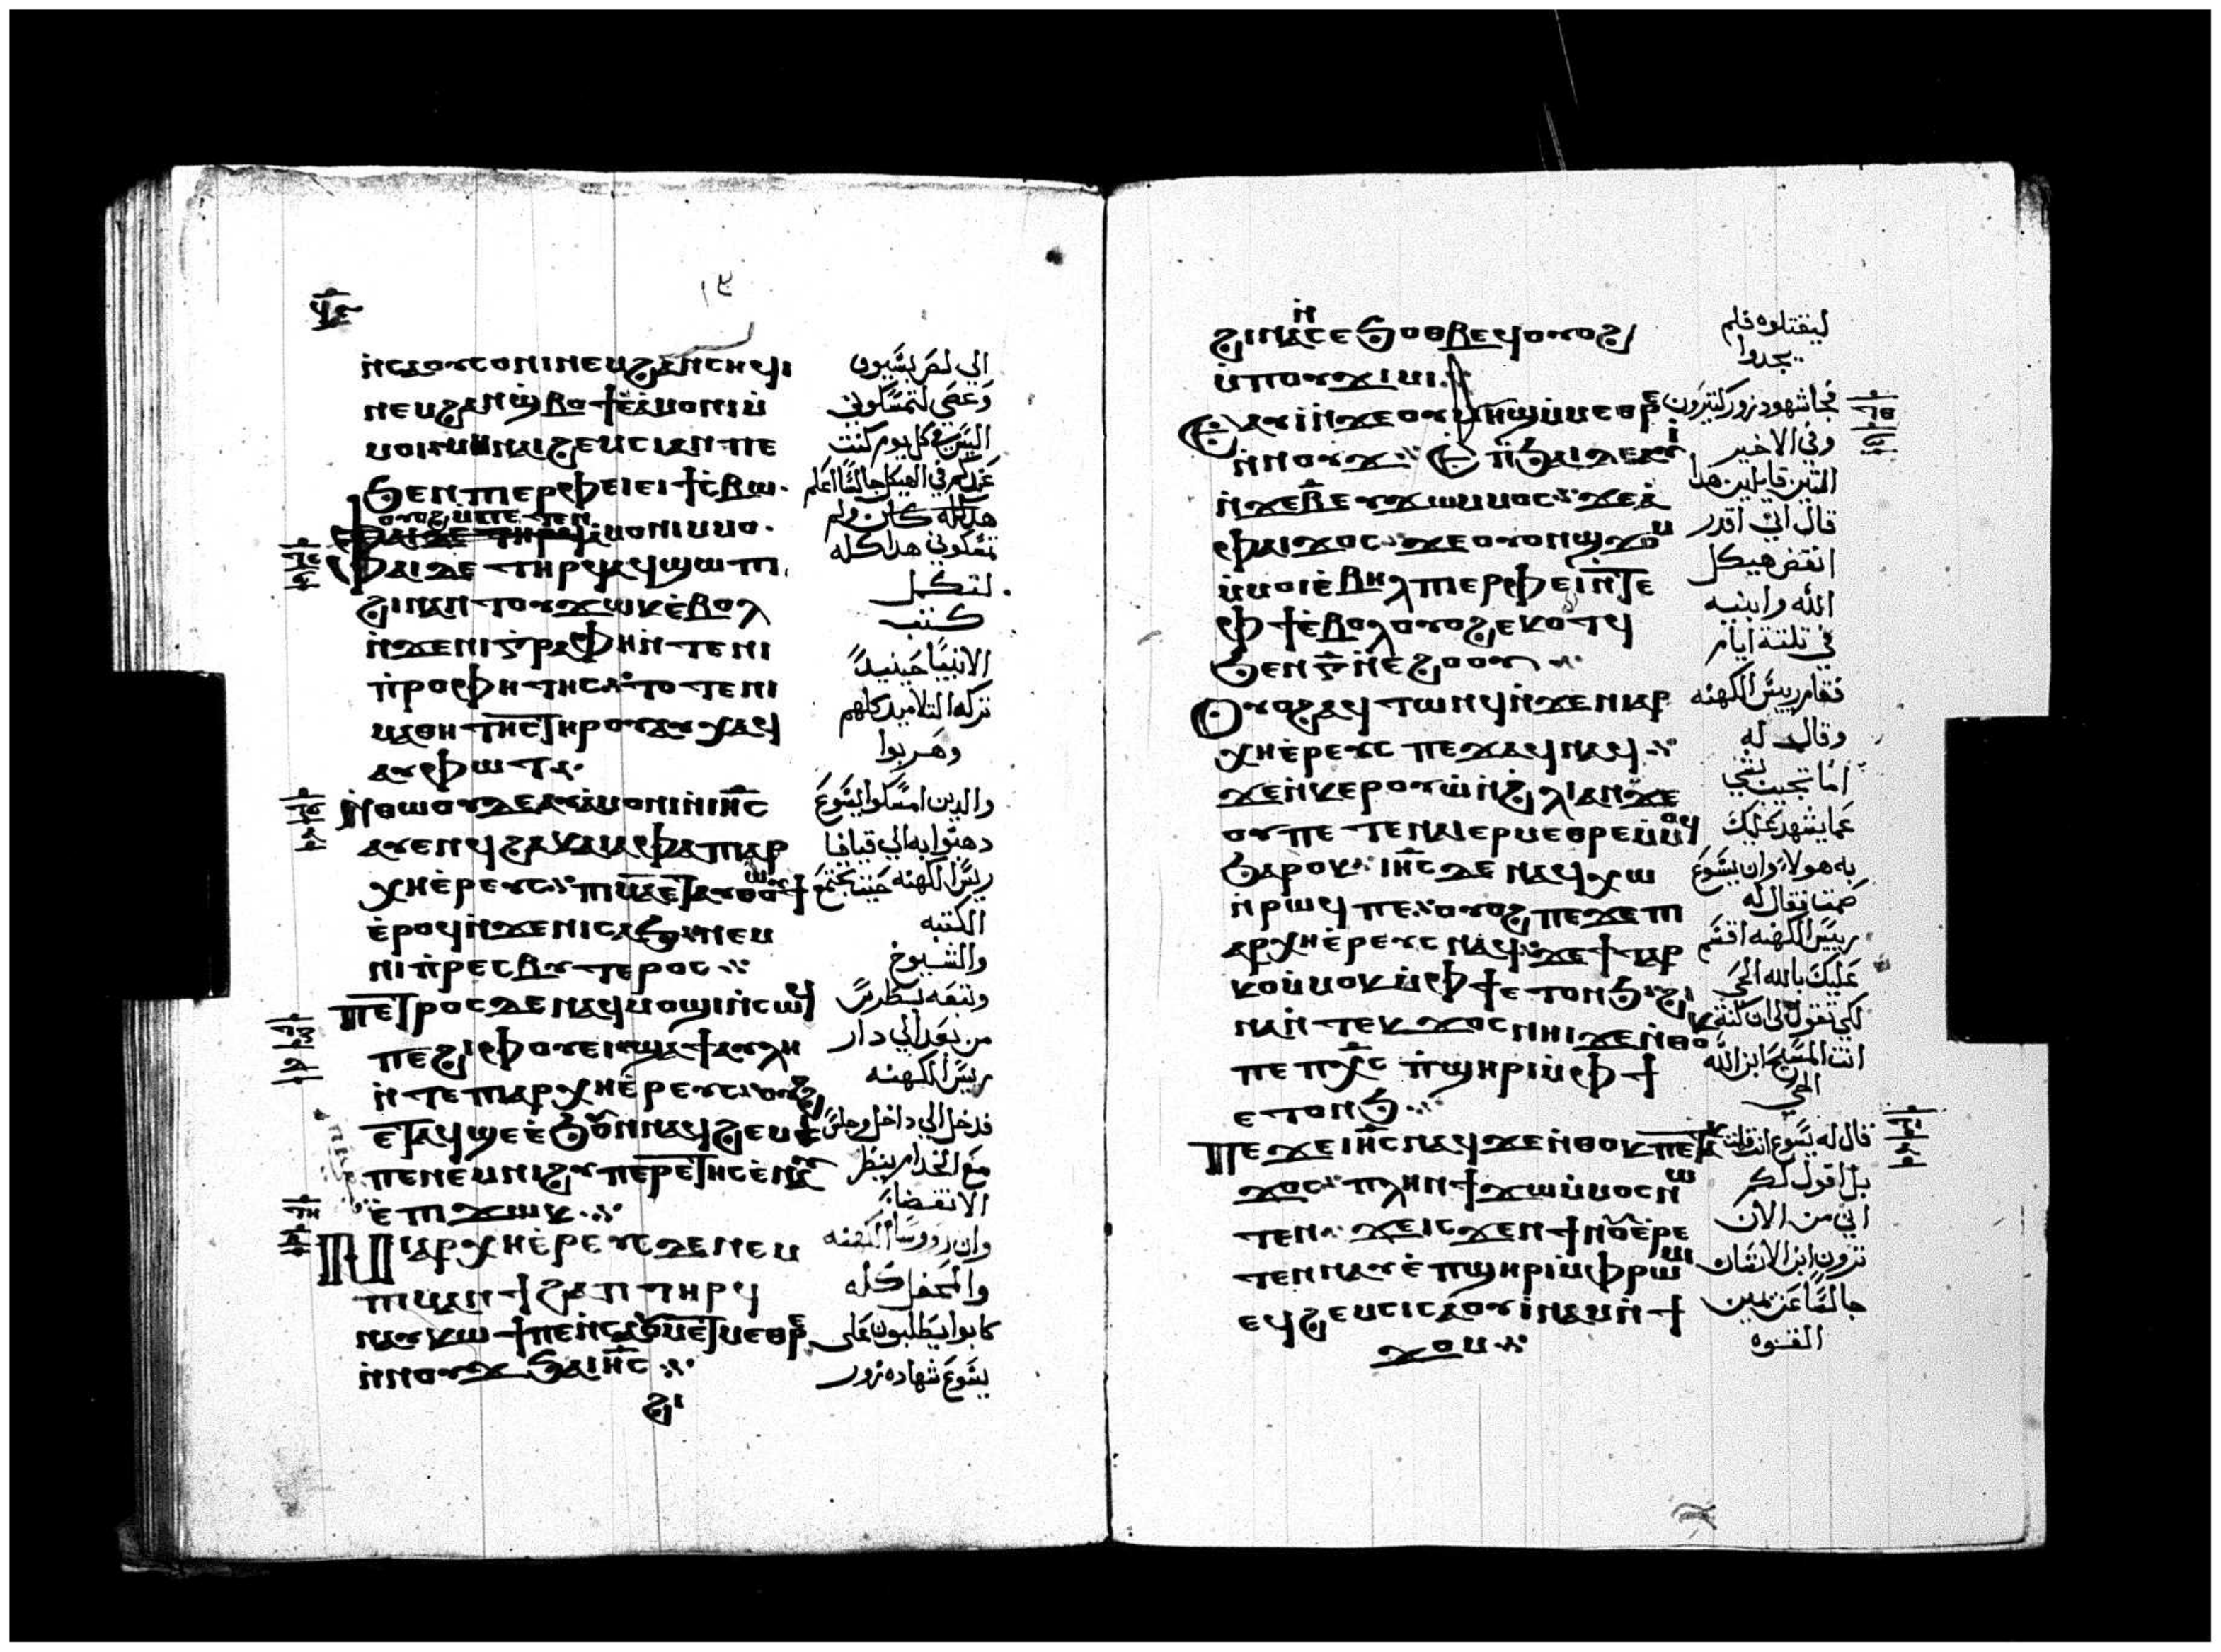 ⲛ̇ⲥⲁⲟⲩⲥⲟⲛⲓ ⲛⲉⲙ ϩⲁⲛⲥⲏϥⲓ
ⲛⲉⲙ ϩⲁⲛϣ̇ⲃⲟϯ ⲉ̇ⲁ̇ⲙⲟⲛⲓ ⲙ̇
ⲙⲟⲓ ⲛⲁⲓϩⲉⲙⲥⲓ ⲁⲛ ⲡⲉ
ϧⲉⲛ ⲡⲓⲉⲣⲫⲉⲓ ⲉⲓϯⲥ̇ⲃⲱ
ⲟⲩⲟϩ ⲙ̇ⲡⲉⲧⲉⲛ
ⲁ̇ⲙⲟⲛⲓ ⲙ̇ⲙⲟ
ⲫⲁⲓ ⲇⲉ ⲧⲏⲣϥ ⲁϥϣⲱⲡⲓ
ϩⲓⲛⲁ ⲛ̇ⲧⲟⲩϫⲱⲕ ⲉ̇ⲃⲟⲗ
ⲛ̇ϫⲉ ⲛⲓⲅ̇ⲣⲁⲫⲏ ⲛ̇ⲧⲉ ⲛⲓ
ⲡ̇ⲣⲟⲫⲏⲧⲏⲥ ⲧⲟⲧⲉ ⲛⲓ
ⲙⲁⲑⲏⲧⲏⲥ ⲧⲏⲣⲟⲩ ⲁⲩⲭⲁϥ
ⲁⲩⲫⲱⲧ
ⲛ̇ⲑⲱⲟⲩ ⲇⲉ ⲁⲩⲁ̇ⲙⲟⲛⲓ ⲛ̇ⲓⲏ̅ⲥ̅
ⲁⲩⲉⲛϥ ϩⲁ ⲕⲁⲓⲁⲫⲁ ⲡⲓⲁⲣ
ⲭⲏⲉ̇ⲣⲉⲩⲥ ⲡⲓⲙⲁ ⲉⲧⲁⲩⲑⲱⲟⲩϯ
ⲉ̇ⲣⲟϥ ⲛ̇ϫⲉ ⲛⲓⲥⲁϧ ⲛⲉⲙ
ⲛⲓⲡ̇ⲣⲉⲥⲃⲩⲧⲉⲣⲟⲥ
ⲡⲉⲧⲣⲟⲥ ⲇⲉ ⲛⲁϥⲙⲟϣⲓ ⲛ̇ⲥⲱϥ
ⲡⲉ ϩⲓ ⲫⲟⲩⲉⲓ ϣⲁ ϯⲁⲩⲗⲏ
ⲛ̇ⲧⲉ ⲡⲓⲁⲣⲭⲏⲉ̇ⲣⲉⲩⲥ ⲟⲩⲟϩ
ⲉⲧⲁϥϣⲉ ⲉ̇ϧⲟⲩⲛ ⲛⲁϥϩⲉⲙⲥⲓ
ⲡⲉ ⲛⲉⲙ ⲛⲓϩⲩⲡⲉⲣⲉⲧⲏⲥ ⲉ̇ⲛⲁⲩ
ⲉ̇ⲡⲓϫⲱⲕ
ⲛⲓⲁⲣⲭⲏⲉ̇ⲣⲉⲩⲥ ⲇⲉ ⲛⲉⲙ
ⲡⲓⲙⲁⲛϯϩⲁⲡ ⲧⲏⲣϥ
ⲛⲁⲩⲕⲱϯ ⲡⲉ ⲛ̇ⲥⲁ ⲟⲩⲙⲉⲧⲙⲉⲑⲣⲉ
ⲛ̇ⲛⲟⲩϫ ϧⲁ ⲓⲏ̅ⲥ̅
الي لص بسيوف
وعصي لتمسكوني
اليس في كل يوم كنت
عندكم في الهيكل جالسًا اعلم
تمسكوني هدا كله
لتكمل
كتب
الانبيا حينيدً
تركه التلاميد كلهم
وهربوا
والدين امسكوا يسوع
دهبوا به الي قيافا
ريس الكهنه حيث تجتمع
الكتبه
والشيوخ
وتبعه بطرس
من بعد الي دار
ريس الكهنه
فدخل الي داخل وجلس
مع الخدام ينظر
الانقضا
وان روسا الكهنه
والمحفل كله
كانوا يطلبون علي
يسوع شهاده زور
ϩⲓⲛⲁ ⲛ̇ⲥⲉϧⲟⲑⲃⲉϥ ⲟⲩⲟϩ
ⲙ̇ⲡⲟⲩϫⲓⲙⲓ
ⲉⲁⲩⲓ̇ ⲛ̇ϫⲉ ⲟⲩⲙⲏϣ ⲙ̇ⲙⲉⲑⲣⲉ
ⲛ̇ⲛⲟⲩϫ ⲉⲡ̇ϧⲁⲉ̇ ⲇⲉ ⲁⲩⲓ̇
ⲛ̇ϫⲉ ⲃ̅ ⲉⲩϫⲱ ⲙ̇ⲙⲟⲥ ϫⲉ ⲁ̇
ⲫⲁⲓ ϫⲟⲥ ϫⲉ ⲟⲩⲟⲛ ϣϫⲟⲙ
ⲙ̇ⲙⲟⲓ ⲉ̇ⲃⲏⲗ ⲡⲓⲉⲣⲫⲉⲓ ⲛ̇ⲧⲉ
ⲫϯ ⲉ̇ⲃⲟⲗ ⲟⲩⲟϩ ⲉⲕⲟⲧϥ
ϧⲉⲛ ⲅ̅ ⲛ̇ⲉ̇ϩⲟⲟⲩ
ⲟⲩⲟϩ ⲁϥⲧⲱⲛϥ ⲛ̇ϫⲉ ⲡⲓⲁⲣ
ⲭⲏⲉ̇ⲣⲉⲩⲥ ⲡⲉϫⲁϥ ⲛⲁϥ
ϫⲉ ⲛ̇ⲕⲉⲣⲟⲩⲱ̇ ⲛ̇ϩⲗⲓ ⲁⲛ ϫⲉ
ⲟⲩ ⲡⲉⲧⲉ ⲛⲁⲓ ⲉⲣⲙⲉⲑⲣⲉ ⲙ̇ⲙⲟϥ
ϧⲁⲣⲟⲕ ⲓⲏ̅ⲥ̅ ⲇⲉ ⲛⲁϥⲭⲱ
ⲛ̇ⲣⲱϥ ⲡⲉ ⲟⲩⲟϩ ⲡⲉϫⲉ ⲡⲓ
ⲁⲣⲭⲏⲉ̇ⲣⲉⲩⲥ ⲛⲁϥ ϫⲉ ϯⲧⲁⲣ
ⲕⲟ ⲙ̇ⲙⲟⲕ ⲙ̇ⲫϯ ⲉⲧⲟⲛϧ ϩⲓ
ⲛⲁ ⲛ̇ⲧⲉⲕϫⲟⲥ ⲛⲏⲓ ϫⲉ ⲛ̇ⲑⲟⲕ
ⲡⲉ ⲡⲭ̅ⲥ̅ ⲡ̇ϣⲏⲣⲓ ⲙ̇ⲫϯ
ⲉⲧⲟⲛϧ
ⲡⲉϫⲉ ⲓⲏ̅ⲥ̅ ⲛⲁϥ ϫⲉ ⲛ̇ⲑⲟⲕ ⲡⲉⲧⲁⲕ
ϫⲟⲥ ⲡⲗⲏⲛ ϯϫⲱ ⲙ̇ⲙⲟⲥ ⲛⲱ
ⲧⲉⲛ ϫⲉ ⲓⲥϫⲉⲛ ϯⲛⲟⲩ ⲉ̇ⲣⲉ
ⲧⲉⲛⲛⲁⲩ ⲉ̇ⲡϣⲏⲣⲓ ⲙ̇ⲫⲣⲱⲙⲓ
ⲉϥϩⲉⲙⲥⲓ ⲥⲁⲟⲩⲓ̇ⲛⲁⲙ ⲛ̇ϯ
ϫⲟⲙ
ليقتلوه فلم
يجدوا
فجا شهود زور كتيرون
وفي الاخير
اتنين قايلين هدا
قال اني اقدر
انقض هيكل
الله وابنيه
في تلتة ايام
فقام رييس الكهنه
وقال له
اما تجيب بشي
عما يشهد عليك
به هولا وان يسوع
صمت فقال له
رييس الكهنه اقسم
عليك بالله الحي
لكي تقول لي ان كنت
انت المسيح ابن الله
الحي
قال له يسوع انت قلت
بل اقول لكم
اني من الان
ترون ابن الانسان
جالسًا عن يمين
القوه